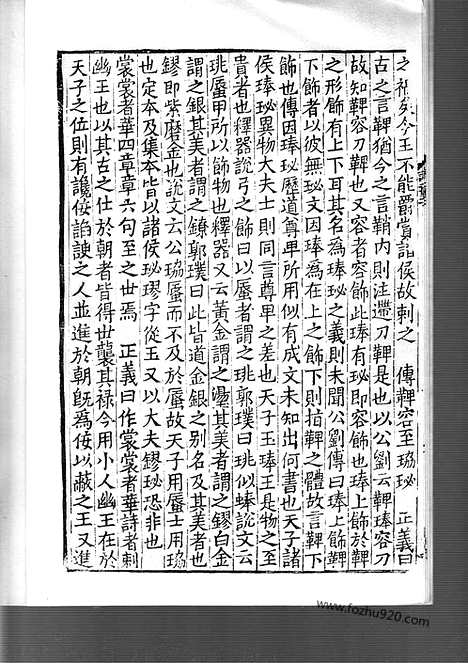 之禮矣今王不能爵賞諸侯故刺之　傳鞸容至珕珌　正義曰
古之言鞸猶今之言鞘內則注遰刀鞸是也以公劉云鞸琫容刀
故知鞸容刀鞸也又容者容飾此琫有珌即容飾也琫上飾於鞸
之形飾有上下耳其名為琫珌之義則未聞公劉傳曰琫上飾鞸
下飾者以彼無珌文因琫為在上之飾下則指鞸之體故言鞸下
飾也傳因琫珌歷道尊卑所用似有成文未知出何書也天子諸
侯琫珌異物大夫士則同言尊卑之差也天子玉琫玉是物之至
貴者也釋器說弓之飾曰以蜃者謂之珧郭璞曰珧似蜯說文云
珧蜃甲所以飾物也釋器又云黃金謂之璗其美者謂之鏐白金
謂之銀其美者謂之鐐郭璞曰此皆道金銀之別名及其美者也
鏐即紫磨金也說文云珕蜃而不及於蜃故天子用蜃士用珕
也定本及集本皆以諸侯珌璆字從玉又以大夫鏐珌恐非也
裳裳者華四章章六句至之世焉　正義曰作裳裳者華詩者刺
幽王也以其古之仕於朝者皆得世襲其祿今用小人幽王在於
天子之位則有讒佞諂諛之人並進於朝旣為佞以蔽之王又進
www.fozhu920.com